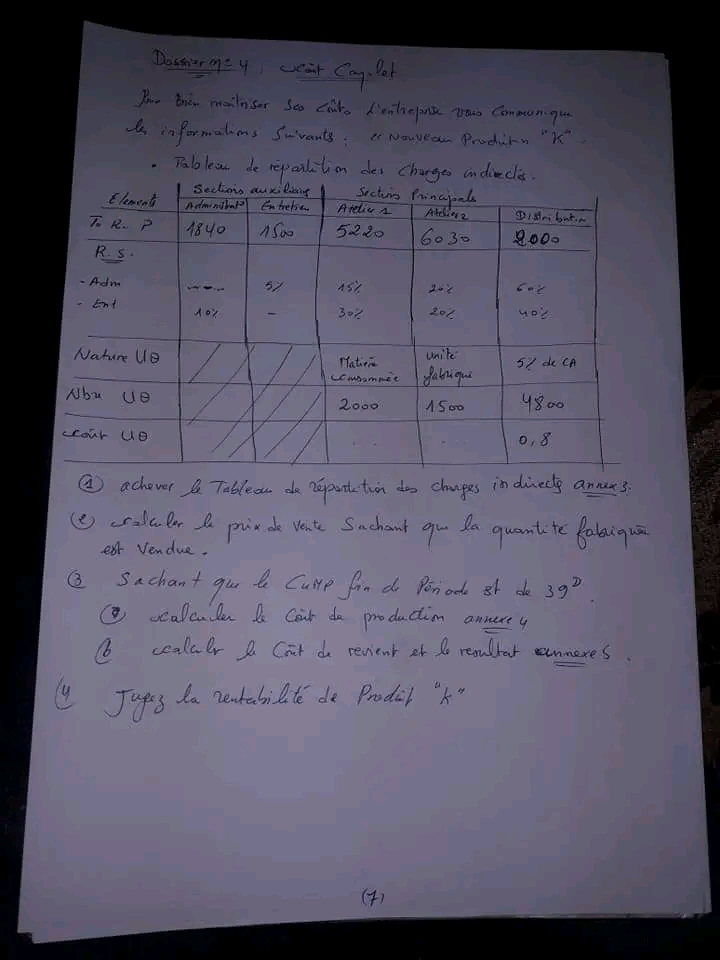 Dossier n° 4 : coût Complet
Pour bien maitriser ses coûts L'entreprise vous communique
les informations suivants : "Nouveau Produit" "K".
• Tableau de répartition des charges indirectes.
Elements | Sections auxiliaires | Sections Principales
Administrat° | Entretien | Atelier 1 | Atelier 2 | Distribution
To R. P | 1840 | 1500 | 5220 | 6030 | 2000
R.S.
- Adm | --- | 5% | 15% | 20% | 60%
- Ent | 10% | - | 30% | 20% | 40%
Nature UΘ | Matière consommée | unité fabriqué | 5% de CA
Nbre UΘ | 2000 | 1500 | 4800
coût UΘ | ... | ... | 0,8
① achever le Tableau de répartition des charges indirects annexe 3.
② calculer le prix de vente sachant que la quantité fabriquée
est vendue.
③ Sachant que le CUMP fin de Période est de 39D.
a calculer le Coût de production annexe 4
b calculer le Coût de revient et le resultat annexe 5.
④ Jugez la rentabilité de Produit "K"
(7)